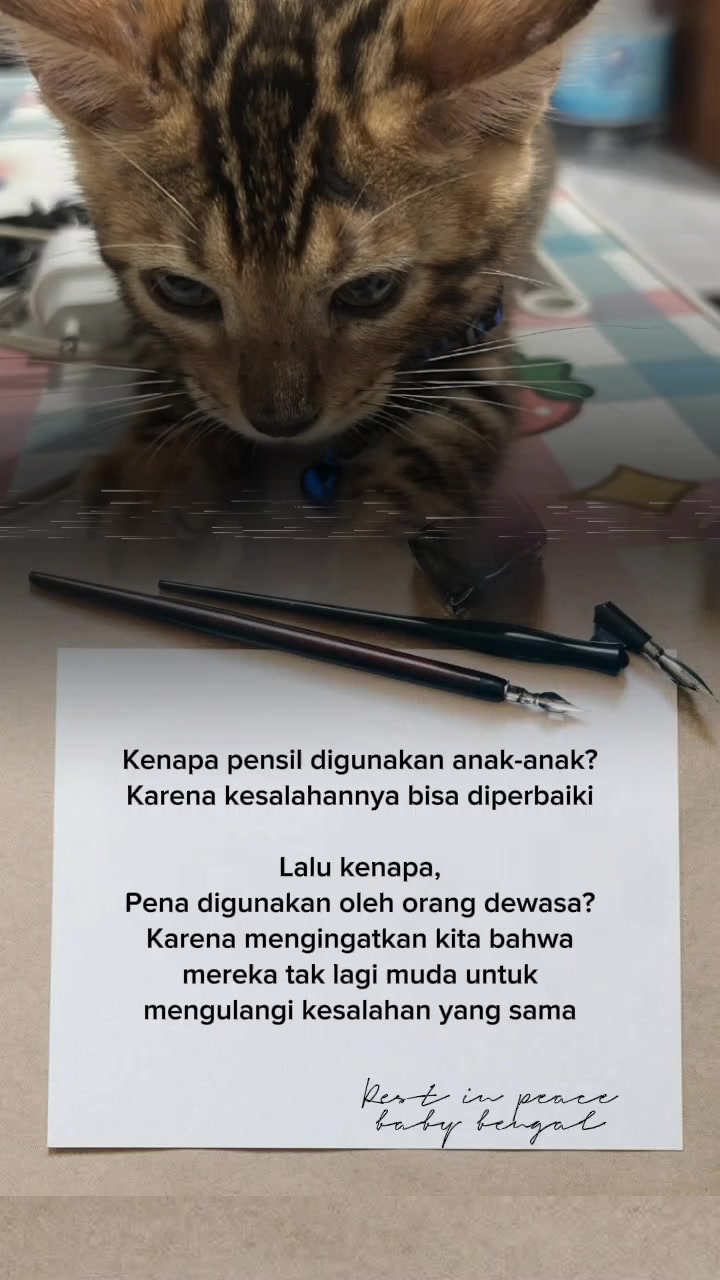 Kenapa pensil digunakan anak-anak?
Karena kesalahannya bisa diperbaiki
Lalu kenapa,
Pena digunakan oleh orang dewasa?
Karena mengingatkan kita bahwa
mereka tak lagi muda untuk
mengulangi kesalahan yang sama
Rest in peace
baby bengal